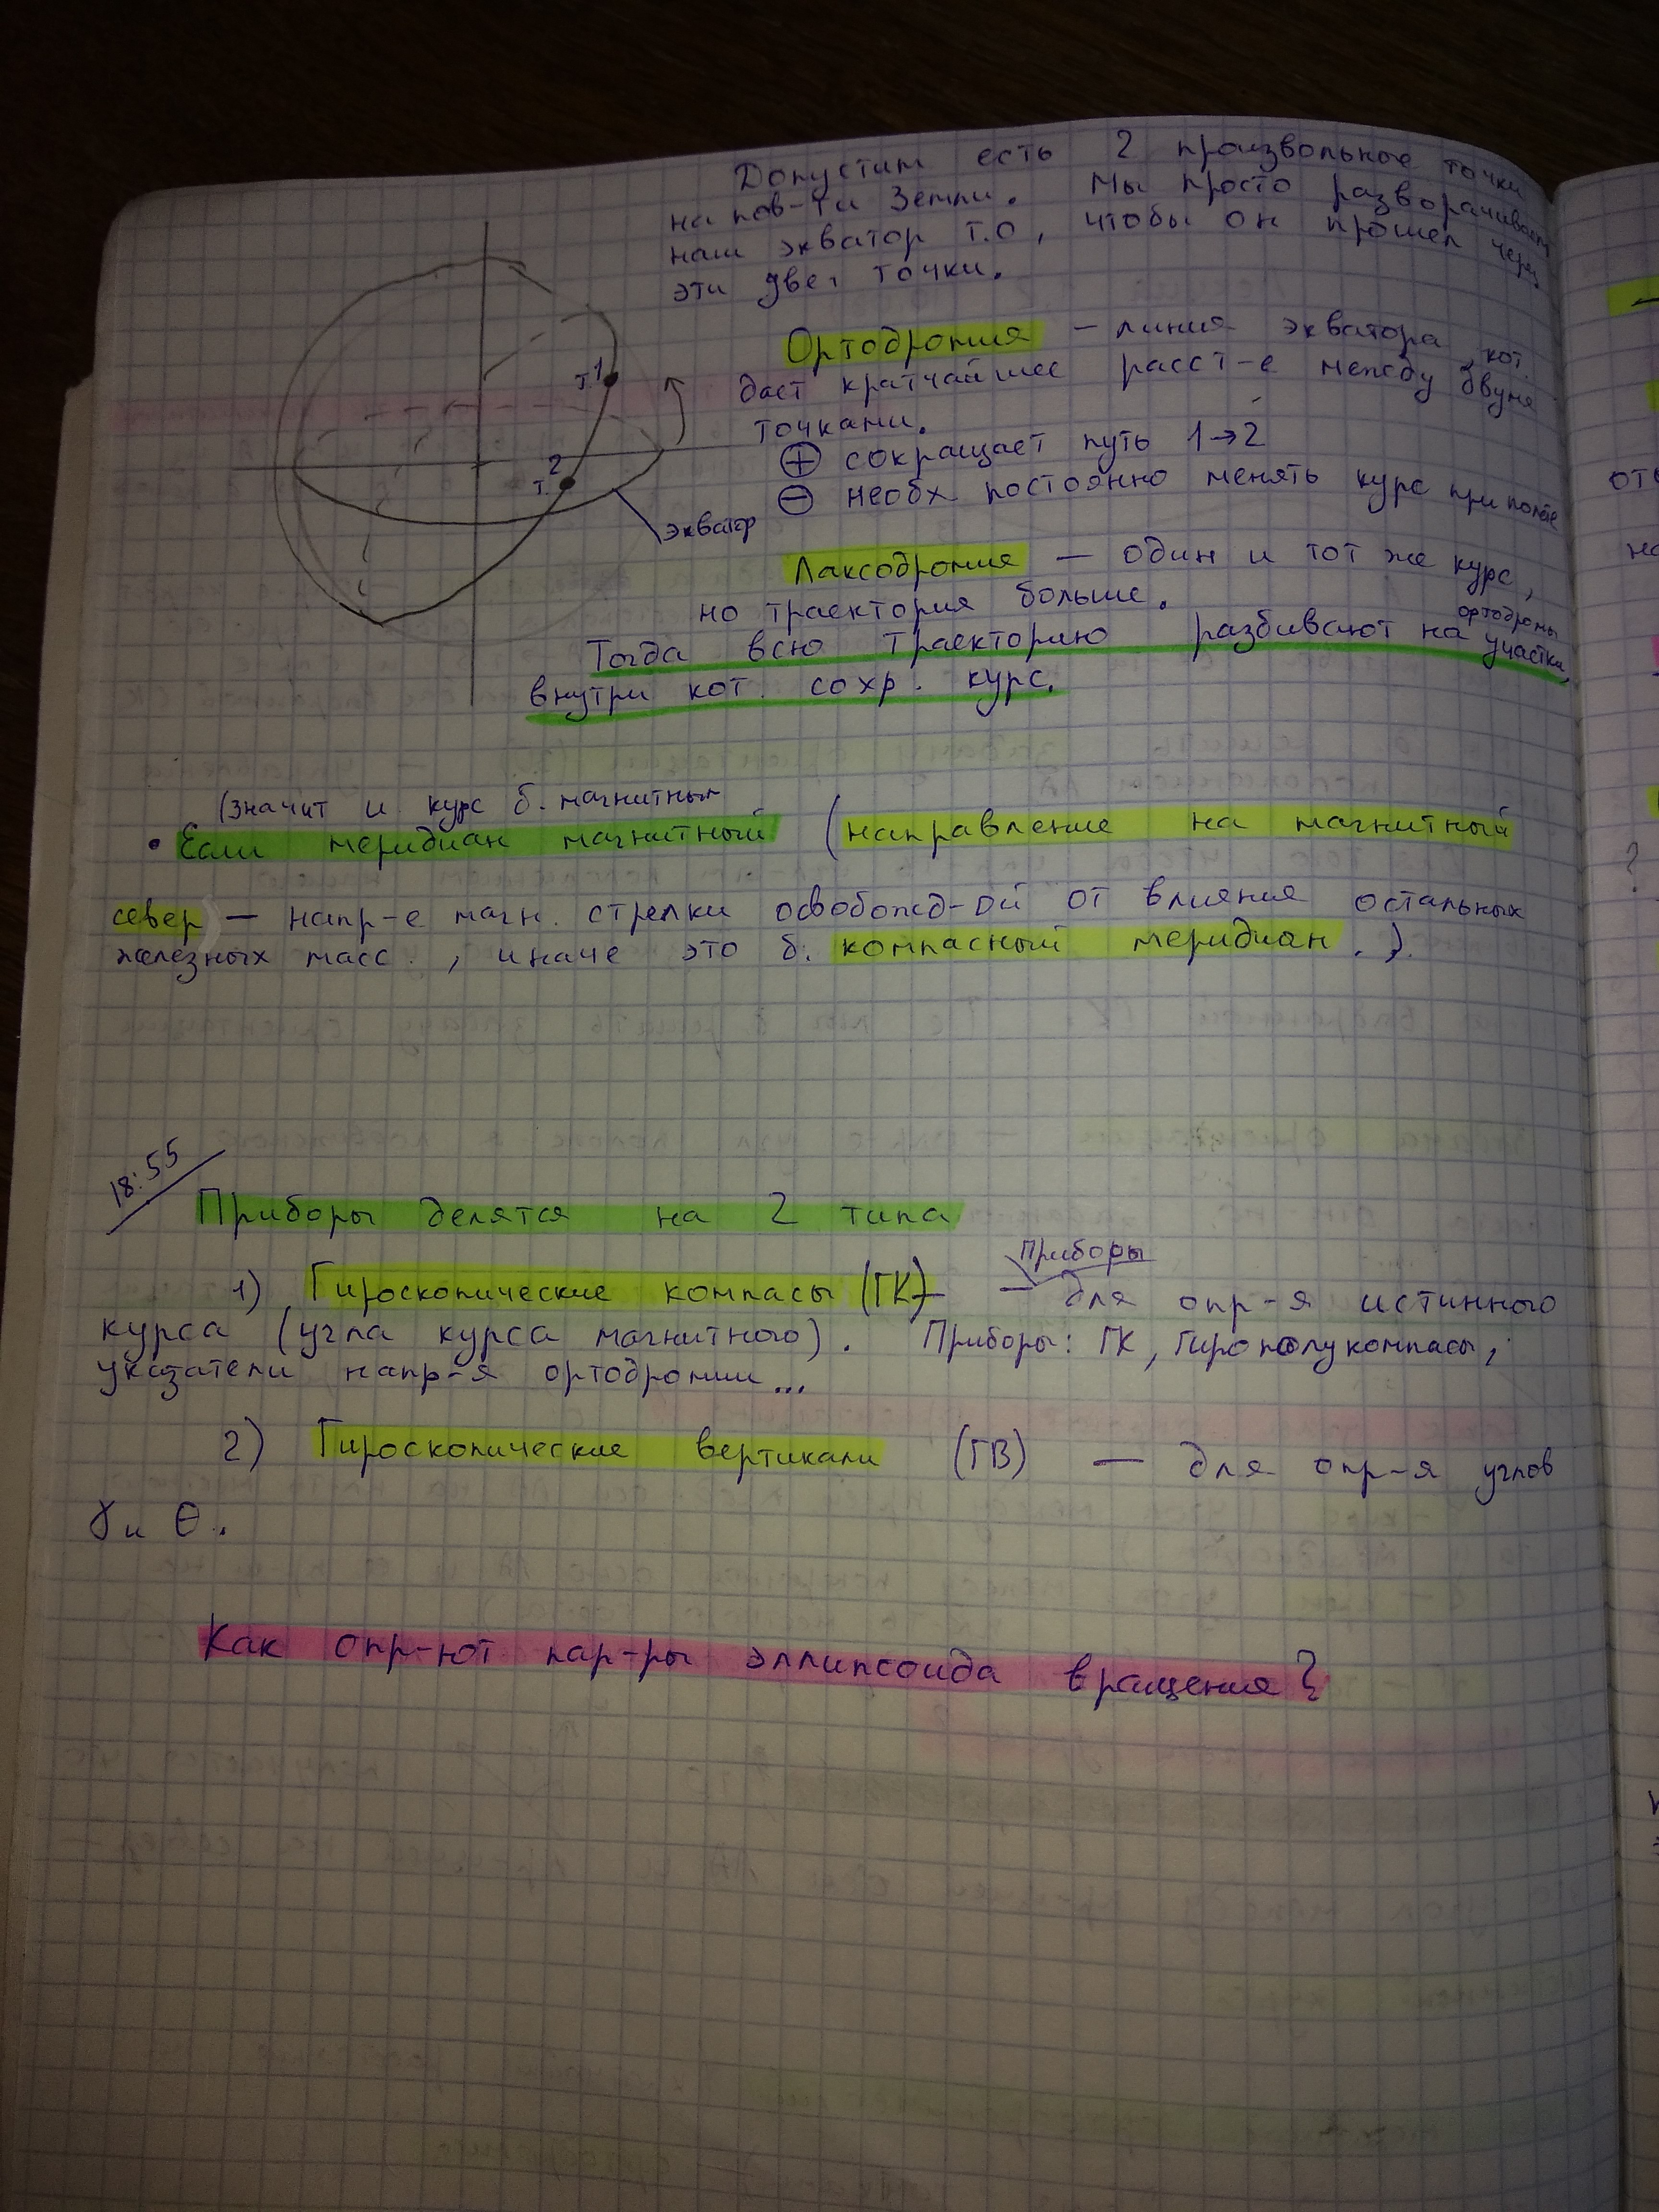 Допустим есть 2 произвольные точки
на пов-ти Земли. Мы просто разворачиваем
наш экватор т.о, чтобы он прошел через
эти две точки.
Ортодромия - линия экватора, кот.
даст кратчайшее расст-е между двумя
точками.
⊕ сокращает путь 1→2
⊖ необх постоянно менять курс при полёте
т1
т.2
экватор
Локсодромия — один и тот же курс,
но траектория больше.
ортодромы
Тогда всю траекторию разбивают на участки,
внутри кот. сохр. курс.
(значит и курс б. магнитным
• Если меридиан магнитный (направление на магнитный
север) — напр-е магн. стрелки освобожд-ой от влияния остальных
железных масс., иначе это б. компасный меридиан.).
18:55
Приборы делятся на 2 типа
Приборы
1) Гироскопические компасы (ГК) — для опр-я истинного
курса (угла курса магнитного). Приборы: ГК, Гирополукомпасы,
указатели напр-я ортодромии...
2) Гироскопические вертикали (ГВ) — для опр-я углов
γ и θ.
Как опр-ют пар-ры эллипсоида вращения?